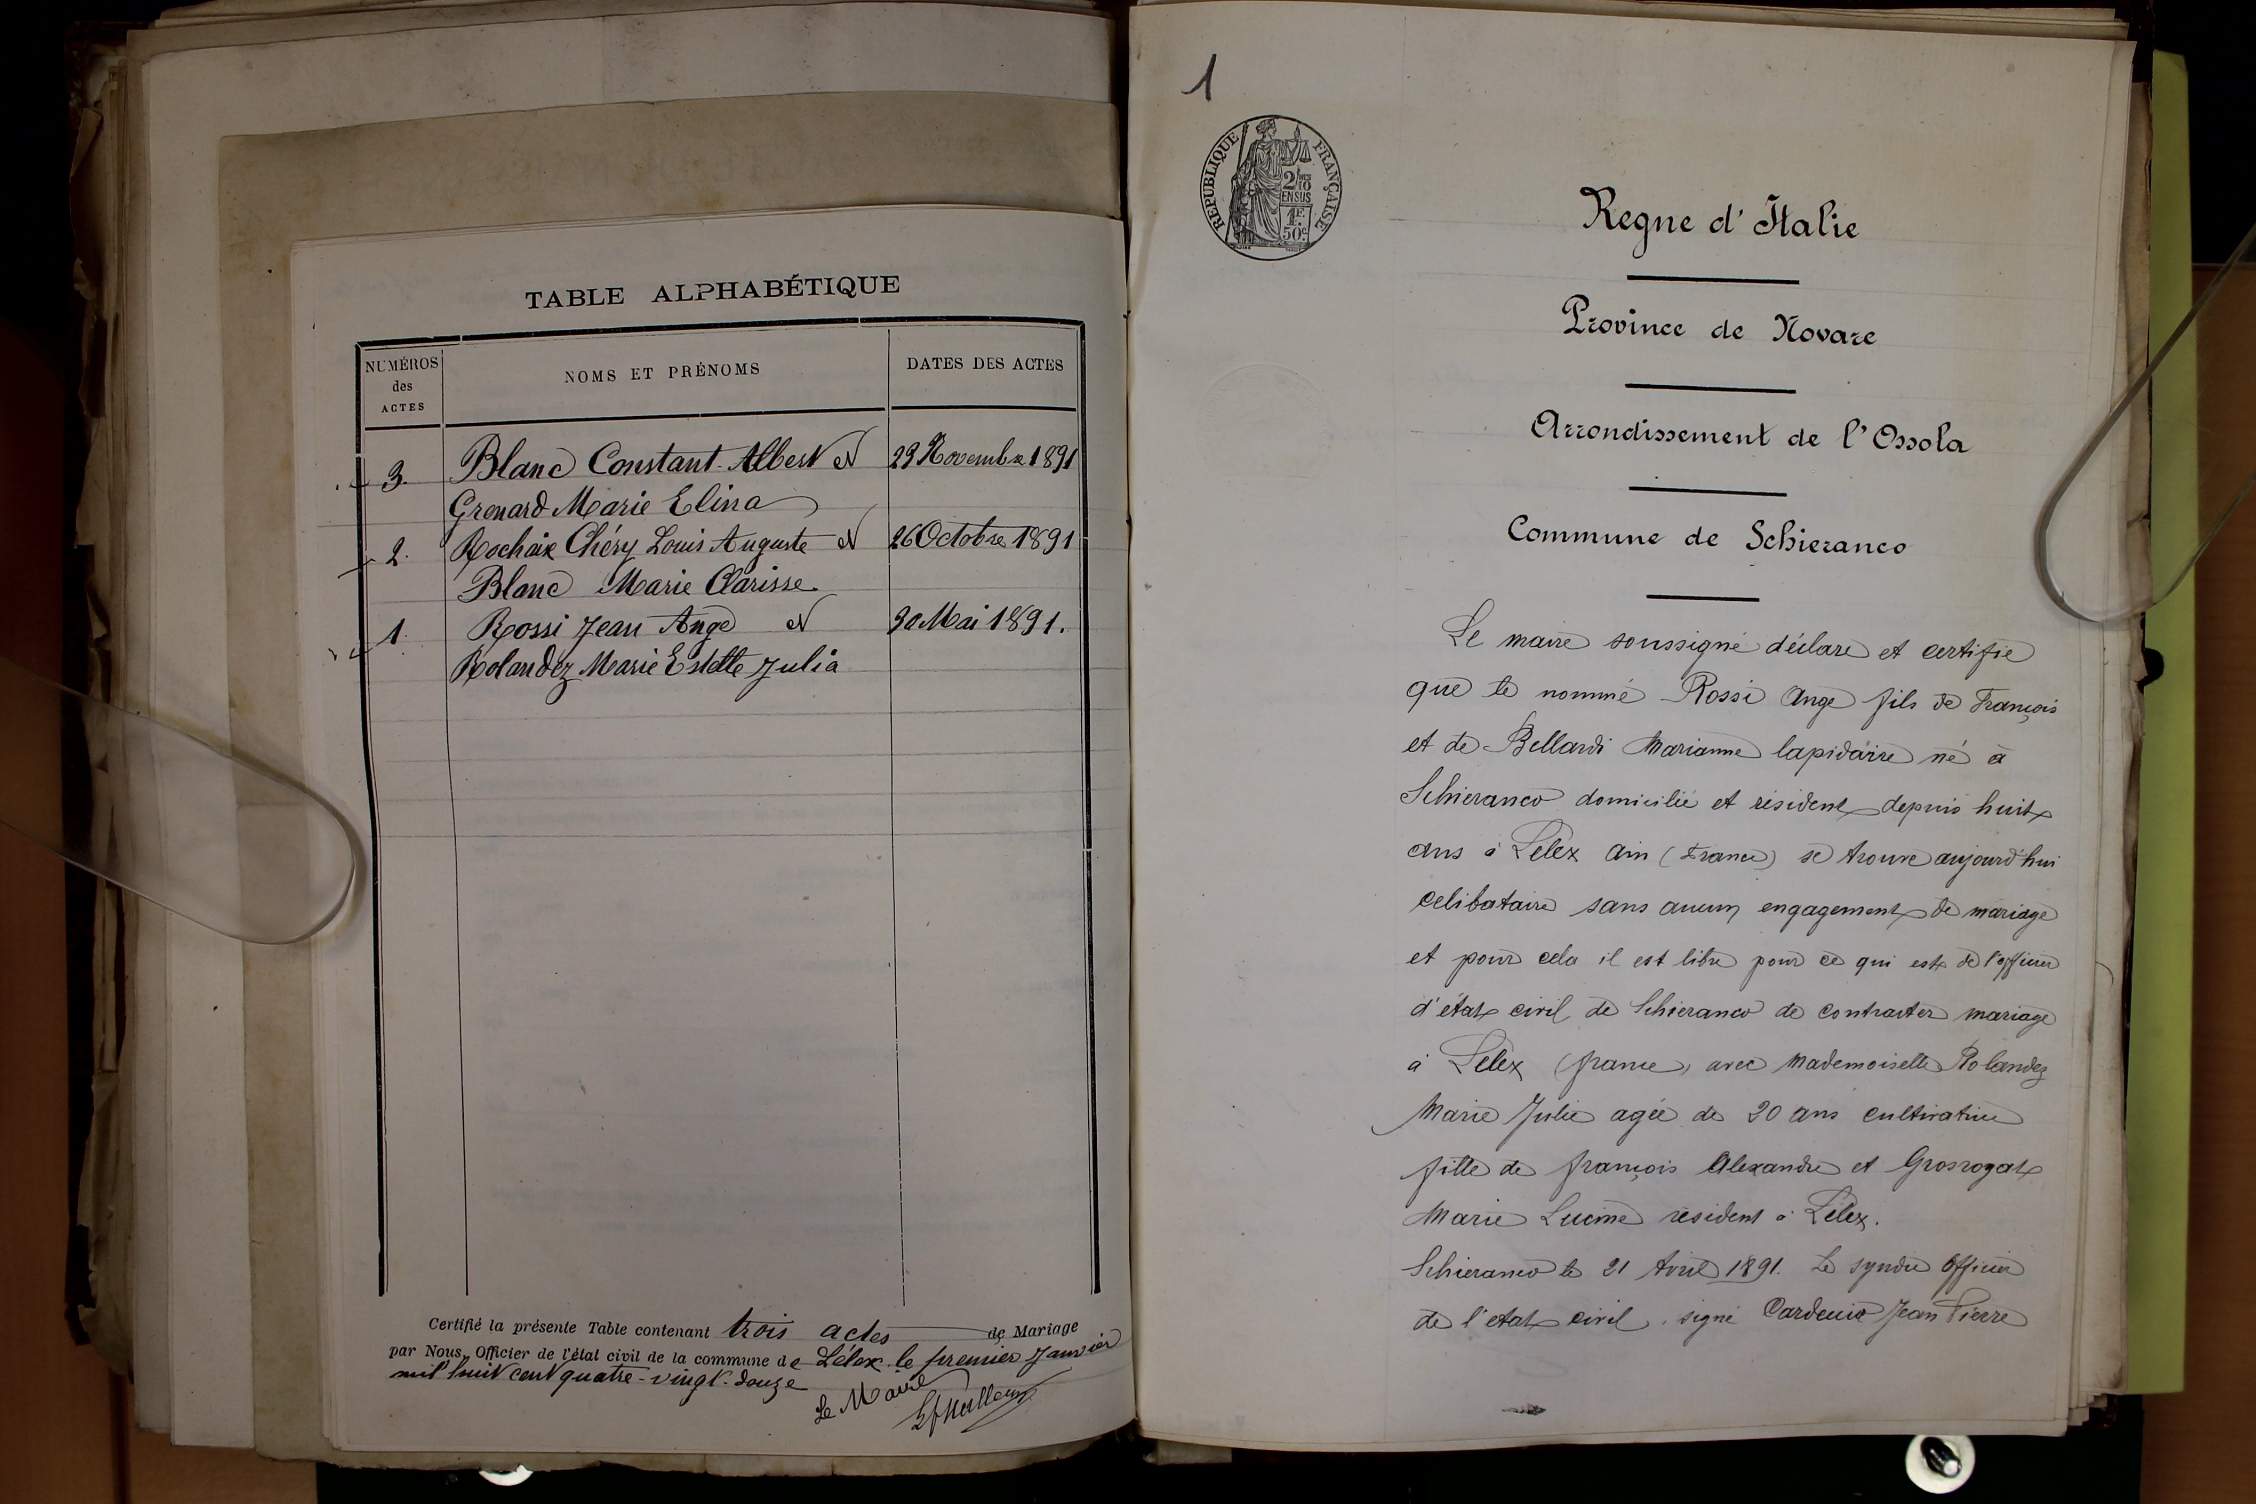 TABLE ALPHABÉTIQUE
NUMÉROS
des
ACTES
NOMS ET PRÉNOMS
DATES DES ACTES
3. Blanc Constant Albert et 29 Novembre 1891
Grenard Marie Elina
2. Rochaix Chéry Louis Auguste et 26 Octobre 1891
Blanc Marie Clarisse
1. Rossi Jean Ange et 30 Mai 1891.
Rolandez Marie Estelle Julia
Certifié la présente Table contenant trois actes de Mariage
par Nous, Officier de l'état civil de la commune de Lélex le premier Janvier
mil huit cent quatre-vingt-douze
Le Maire
1
RÉPUBLIQUE FRANÇAISE
2/10
EN SUS
1F.
50c.
Regne d'Italie
Province de Novare
Arrondissement de l'Ossola
Commune de Schieranco
Le maire soussigné déclare et certifie
que le nommé Rossi Ange fils de François
et de Bellardi Marianne lapidaire né à
Schieranco domicilié et résident depuis huit
ans à Lélex Ain (France) se trouve aujourd'hui
celibataire sans aucun engagement de mariage
et pour cela il est libre pour ce qui est de l'officier
d'état civil de Schieranco de contracter mariage
à Lélex (france) avec Mademoiselle Rolandez
Marie Julie agée de 20 ans cultivatrice
fille de françois Alexandre et Grosrogat
Marie Lucine résident à Lélex.
Schieranco le 21 Avril 1891. Le syndic Officier
de l'etat civil. signé Jean Pierre